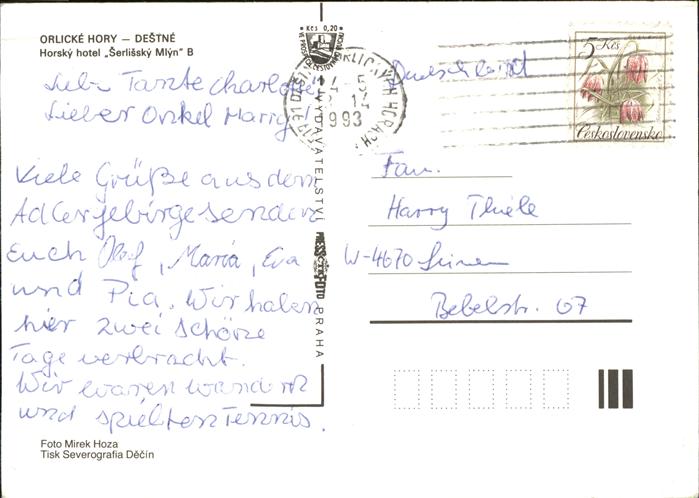 ORLICKÉ HORY – DEŠTNÉ
Horský hotel „Šerlišský Mlýn" B
Liebe Tante Charlotte
Lieber Onkel Harry
Viele Grüße aus dem
Adlergebirge senden
Euch Olaf, Maria, Eva
und Pia. Wir haben
hier zwei schöne
Tage verbracht.
Wir waren wandern
und spielten Tennis.
Foto Mirek Hoza
Tisk Severografia Děčín
Kčs 0,20
VYDAVATELSTVÍ
PRESSFOTO
PRAHA
ORLICKÝCH HORÁCH
1993
5 Kčs
Československo
Deutschland
Fam.
Harry Thiele
W-4670 Lünen
Bebelstr. 67